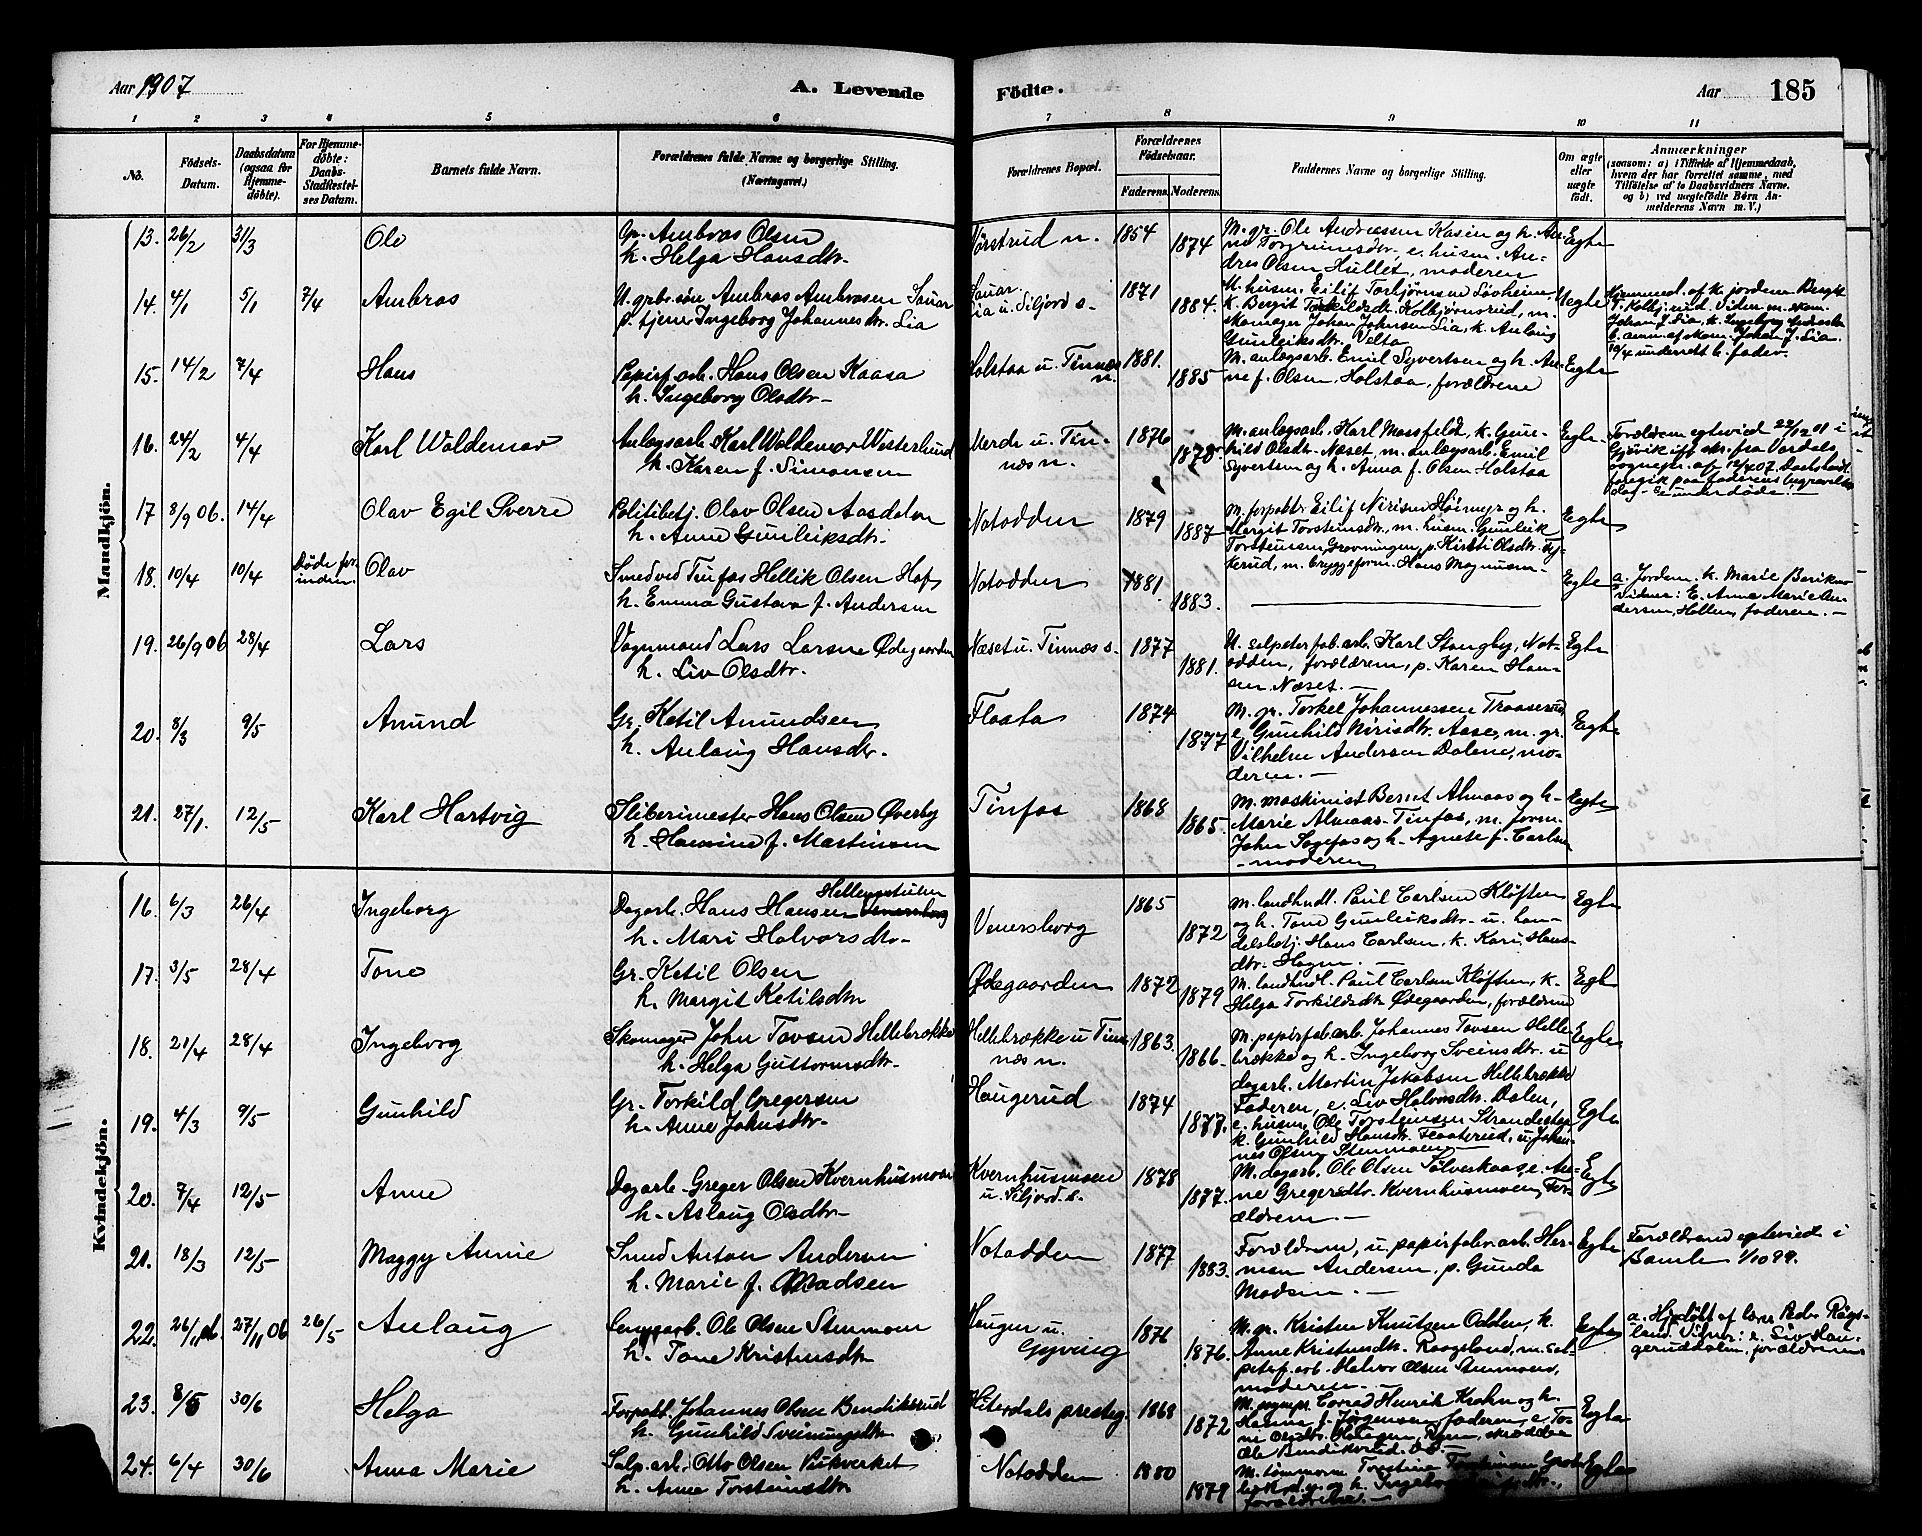 Aar 1907
A. Levende
Födte.
Aar
185
1 2 3 4 5 6 7 8 9 10 11
No.
Födsels-
Datum.
Daabsdatum
(ogsaa for
Hjemme-
döbte).
For Hjemme-
döbte:
Daabs-
Stadfæstel-
ses Datum.
Barnets fulde Navn.
Forældrenes fulde Navne og borgerlige Stilling.
(Næringsvei.)
Forældrenes Bopæl.
Forældrenes
Födselsaar.
Faderens.
Moderens.
Faddernes Navne og borgerlige Stilling.
Om ægte
eller
uægte
födt.
Anmærkninger
(saasom: a) i Tilfælde af Hjemmedaab,
hvem der har forrettet samme, med
Tilföielse af to Daabsvidners Navne.
og b) ved uægtefödte Börn An-
melderens Navn m. V.)
Mandkjön.
13. 26/2 31/3 Ole
Gr. Ambros Olsen
h. Helga Hansdtr.
1854 1874
M. gr. Ole Andreassen Kasin og h. An-
ne Torgrimsdtr., e. husm. An-
dres Olsen Hullet, moderen
Egte
14. 4/1 5/1 7/4 Ambros
U. grbr.søn Ambros Ambrosen Sauar
p. tjener Ingeborg Johannesdtr. Lia
Sauar.
Lia u. Siljord s.
1871 1884.
M. husm. Eilif Torbjørnsen Løvheim,
k. Bergit Torkildsdtr. Kolbjørnsrud, m.
skomager Johan Johnsen Lia, k. Aslaug
Gunleiksdtr. Velta
Uegte
10/4 underrett b. fader.
15. 14/2 7/4 Hans
Papirf.arb. Hans Olsen Kaasa
h. Ingeborg Olsdtr.
Holstaa u. Tinnæs
n.
1881. 1885
M. anlægsarb. Emil Syvertsen og h. An-
ne f. Olsen, Holstaa, forældrene
Egte
16. 24/2 4/4 Karl Waldemar
Anlægsarb. Karl Waldemar Westerlund
h. Karen f. Simonsen
u. Tin-
næs n.
1876 1878.
M. anlægsarb. Karl Mossfeldt, k. Gun-
hild Olsdtr. Næset, m. anlægsarb. Emil
Syvertsen og h. Anna f. Olsen Holstaa
Egte
Forældrene egteviet 22/12 01 i
Gjøvik
17 8/9 06. 14/4 Olav Egil Sverre
Politibetj. Olav Olsen Aasdalen
h. Anne Gunleiksdtr.
Notodden
1879 1887
M. forpakter Eilif Nirisen Høimyr og h.
Margit Torsteinsdtr., m. husm. Gunleik
Torsteinsen Grovningen, p. Kirsti Olsdtr.
m. bryggeform. Hans Magnusen
Egte
18. 10/4 10/4 Døde for-
inden. Olav
Smed ved Tinfos Hellik Olsen Hof
h. Emma Gustava f. Andersen
Notodden
1881 1883.
Egte
a. Jordem. k. Marie
vidner: E. Anne Marie An-
dersen, Hollen, faderen.
19. 26/9 06 28/4 Lars
Vognmand Lars Larsen Ødegaarden
h. Liv Olsdtr.
Næset u. Tinnæs s.
1877 1881.
U. salpeterfab.arb. Karl Stangby, Not-
odden, forældrene, p. Karen Han-
sen Næset.
Egte
20. 8/3 9/5 Amund
Gr. Ketil Amundsen
h. Aslaug Hansdtr.
Flaata
1874 1877
M. gr. Torkel Johannessen Traaserud
e. Gunhild Nirisdtr. Aase, m. gr.
Vilhelm Andersen Dalene, mo-
deren.
Egte
21. 27/1. 12/5 Karl Hartvig
Sliberimester Hans Olsen Øverby
h. Hansine f. Martinsen
Tinfos
1868 1865.
M. maskinist Bernt Almaas og h.
Marie Almaas Tinfos, m. form.
John Sagefos og h. Agnete f. Carlsen
moderen
Egte
Kvindekjön.
16. 6/3 26/4 Ingeborg
Dagarb. Hans Hansen
h. Mari Halvorsdtr.
Venersborg
1865 1872
M. landhndl. Paul Carlsen Kløften
og h. Tone Gunleiksdtr. u. han-
delsbetj. Hans Carlsen, k. Kari Hans-
dtr. Hagen.
Egte
17. 3/5 28/4 Tone
Gr. Ketil Olsen
h. Margit Ketilsdtr
Ødegaarden
1872 1879
M. landhndl. Paul Carlsen Kløften, k.
Helga Torkildsdtr Ødegaarden, forældrene
Egte
18. 21/4 28/4 Ingeborg
Skomager John Tovsen Hellebrække
h. Helga Guttormsdtr.
Hellebrække u Tin-
næs n.
1863. 1866.
M. papirfab.arb. Johannes Tovsen Helle-
brække og h. Ingeborg Sveinsdtr. u
dagarb. Martin Jakobsen Hellebrække
Egte
19. 4/3 9/5 Gunhild
Gr. Torkild Gregersen
h. Anne Johnsdtr.
Haugerud
1874 1877.
Faderen, e. Liv Halvorsdtr. Dalen,
e. husm. Ole Torsteinsen Strandestøp,
k. Gunhild Hansdtr. Flaaterud, u. Johan-
nes Olsen Stenmoen
Egte
20. 7/4 12/5 Anne
Dagarb. Greger Olsen Kvernhusmoen
h. Aslaug Olsdtr.
Kvernhusmoen
u. Siljord s.
1878 1877.
M. dagarb. Ole Olsen Sølverkaas, e. An-
ne Gregersdtr. Kvernhusmoen, For-
ældrene.
Egte
21. 18/3 12/5 Maggy Annie
Smed Anton Andersen
h. Marie f. Madsen
Notodden
1877 1883.
Forældrene, u. papirfabr.arb. Her-
man Andersen, p. Gunda
Madsen.
Egte
Forældrene egteviet i
Bamle 1/10 99.
22. 26/11 06. 27/11 06 26/5 Aslaug
Ole Olsen Stenmoen
h. Tone Kristensdtr
Haugen u.
Gyving
1876 1876.
M. gr. Kristen Knutsen Odden, k.
Anne Kristensdtr. Raageland, m. sal-
peterf.arb. Halvor Olsen Stenmoen,
moderen.
Egte
a. Hjdøbt af lærer Peder Raage-
land. Vidner: e. Liv Hau-
geruddalen, forældrene
23. 8/5 30/6 Helga
Forpakt. Johannes Olsen Bendiksrud
h. Gunhild Sveinungsdtr.
Hiterdals presteg.
1868 1872
Conrad Henrik Krohn og h.
Hanna f. Jørgensen, faderen, e. To-
ne
Ole Bendiksrud.
Egte
24. 6/4 30/6 Anna Marie
Salp.arb. Otto Olsen Vikverket
h. Anne Torsteinsdtr
Notodden
1880 1879
M. tømmerm. Torstein
og h. Ingeborg
forældrene.
Egte